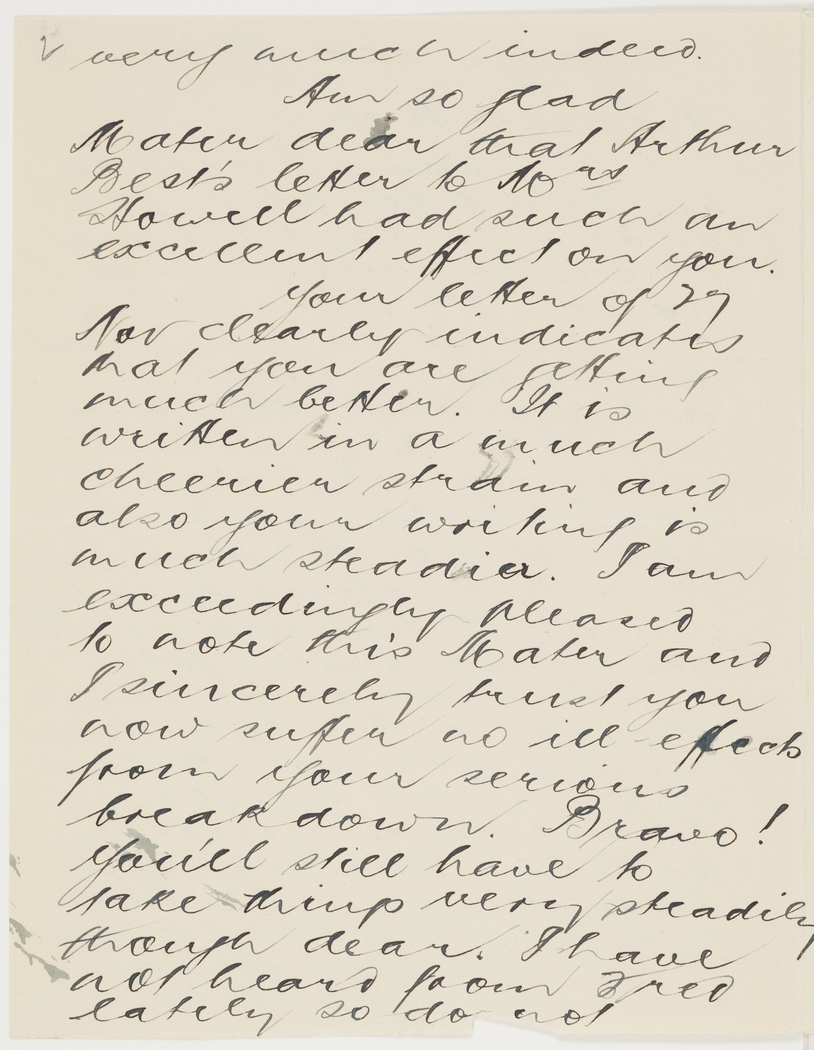 2 very much indeed.
Am so glad
Mater dear that Arthur
Best's letter to Mrs
Howell had such an
excellent effect on you.
Your letter of 29
Nov clearly indicates
that you are getting
much better. It is
written in a much
cheerier strain and
also your writing is
much steadier. I am
exceedingly pleased
to note this Mater and
I sincerely trust you
now suffer no ill-effects
from your serious
breakdown. Bravo!
You'll still have to
take things very steadily
though dear. I have
not heard from Fred
lately so do not